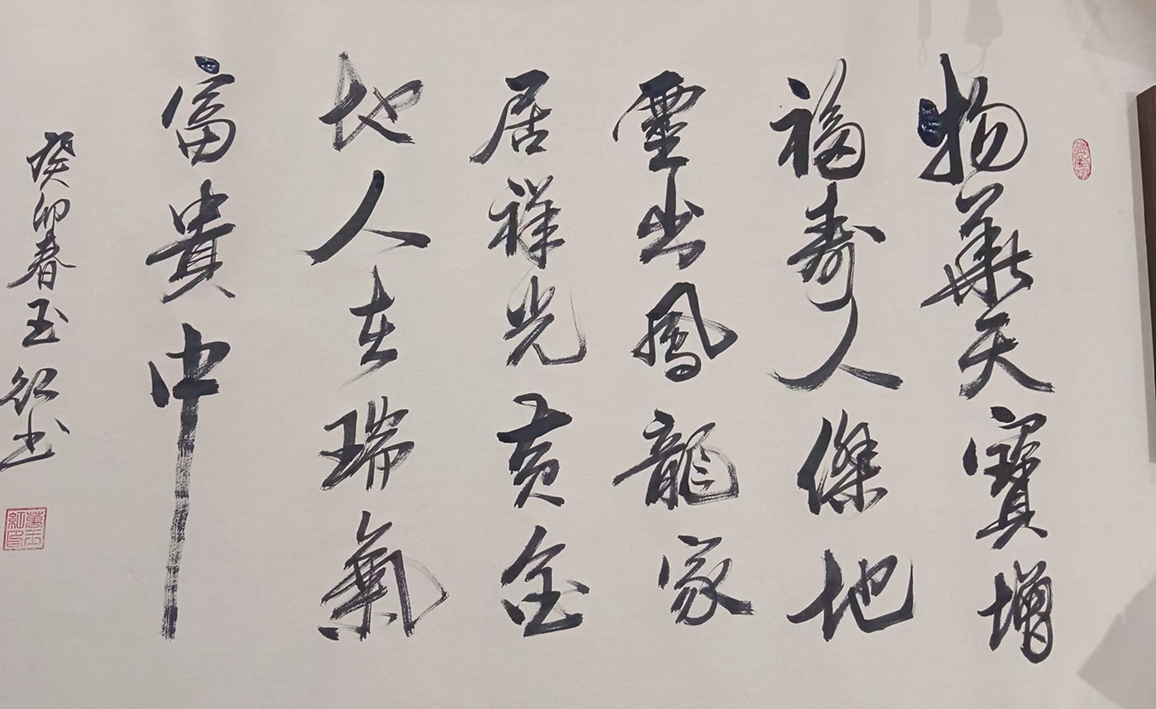 物華天寶增
福壽人傑地
靈出鳳龍家
居祥光黄金
地人在瑞氣
富貴中
癸卯春玉紅书